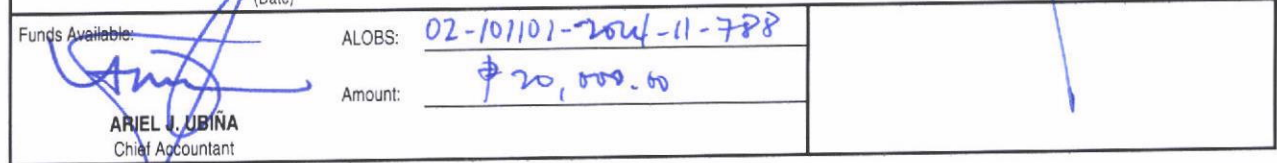 (Date)
Funds Available:
ALOBS: 02-101101-2024-11-788
Amount: ₱ 20,000.00
ARIEL J. UBIÑA
Chief Accountant